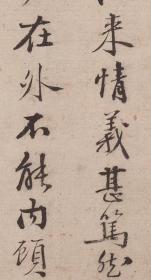 来情義甚篤然
在外不能内顧